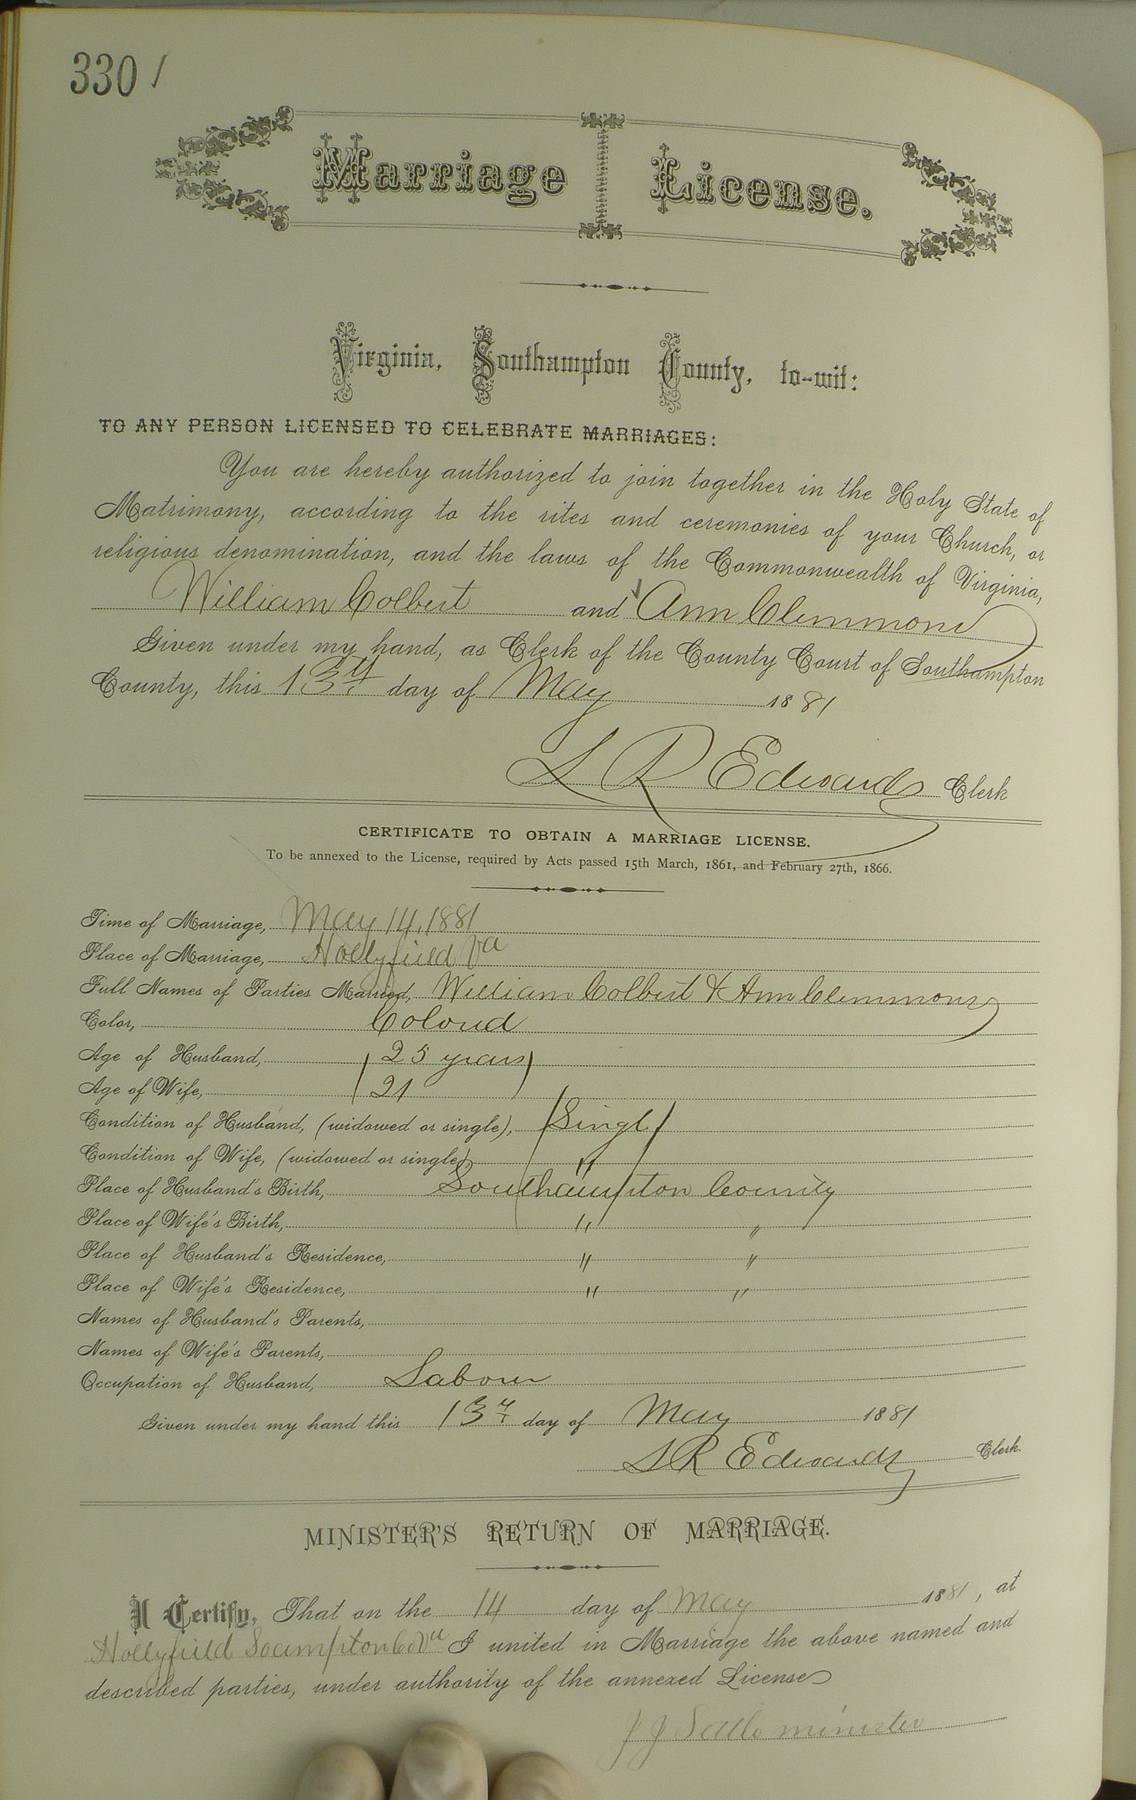 330 /
Marriage License.
Virginia, Southampton County, to-wit:
TO ANY PERSON LICENSED TO CELEBRATE MARRIAGES:
You are hereby authorized to join together in the Holy State of
Matrimony, according to the rites and ceremonies of your Church, or
religious denomination, and the laws of the Commonwealth of Virginia,
William Colbert and Ann Clemmons
Given under my hand, as Clerk of the County Court of Southampton
County, this 13th day of May 1881
L R Edwards Clerk
CERTIFICATE TO OBTAIN A MARRIAGE LICENSE.
To be annexed to the License, required by Acts passed 15th March, 1861, and February 27th, 1866.
Time of Marriage, May 14, 1881
Place of Marriage, Hollyfield Va
Full Names of Parties Married, William Colbert & Ann Clemmons
Color, Colord
Age of Husband, 25 years
Age of Wife, 21
Condition of Husband, (widowed or single), Singl
Condition of Wife, (widowed or single), "
Place of Husband's Birth, Southampton County
Place of Wife's Birth, " "
Place of Husband's Residence, " "
Place of Wife's Residence, " "
Names of Husband's Parents,
Names of Wife's Parents,
Occupation of Husband, Labour
Given under my hand this 13th day of May 1881
L R Edwards Clerk
MINISTER'S RETURN OF MARRIAGE.
I Certify, That on the 14 day of May 1881, at
Hollyfield Soampton Co Va I united in Marriage the above named and
described parties, under authority of the annexed License
J J minister